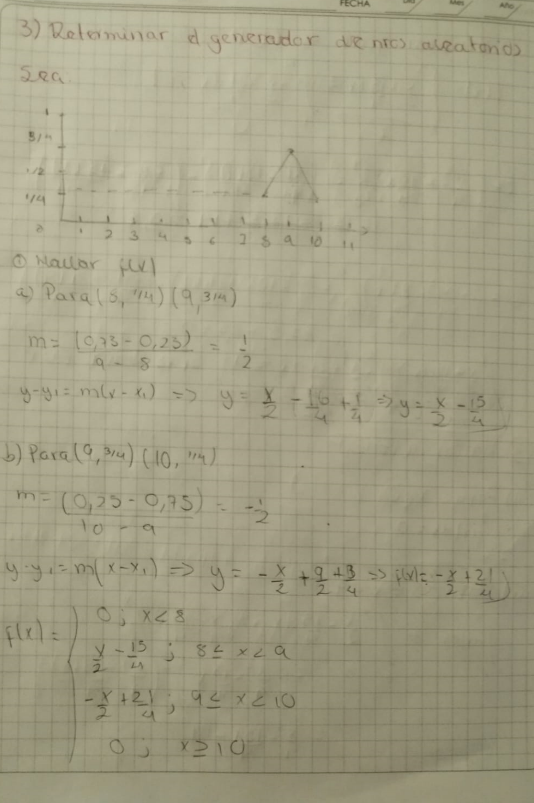 FECHA Día Mes Año
3) Determinar el generador de nros aleatorios
Sea
1
3/4
1/2
1/4
0 1 2 3 4 5 6 7 8 9 10 11
① Hallar f(x)
a) Para (8, 1/4) (9, 3/4)
m = (0,75 - 0,25) / 9 - 8 = 1/2
y-y₁ = m(x - x₁) => y = x/2 - 16/4 + 1/4 => y = x/2 - 15/4
b) Para (9, 3/4) (10, 1/4)
m = (0,25 - 0,75) / 10 - 9 = -1/2
y-y₁ = m(x - x₁) => y = -x/2 + 9/2 + 3/4 => f(x) = -x/2 + 21/4
f(x) = { 0 ; x < 8
x/2 - 15/4 ; 8 ≤ x < 9
-x/2 + 21/4 ; 9 ≤ x < 10
0 ; x ≥ 10